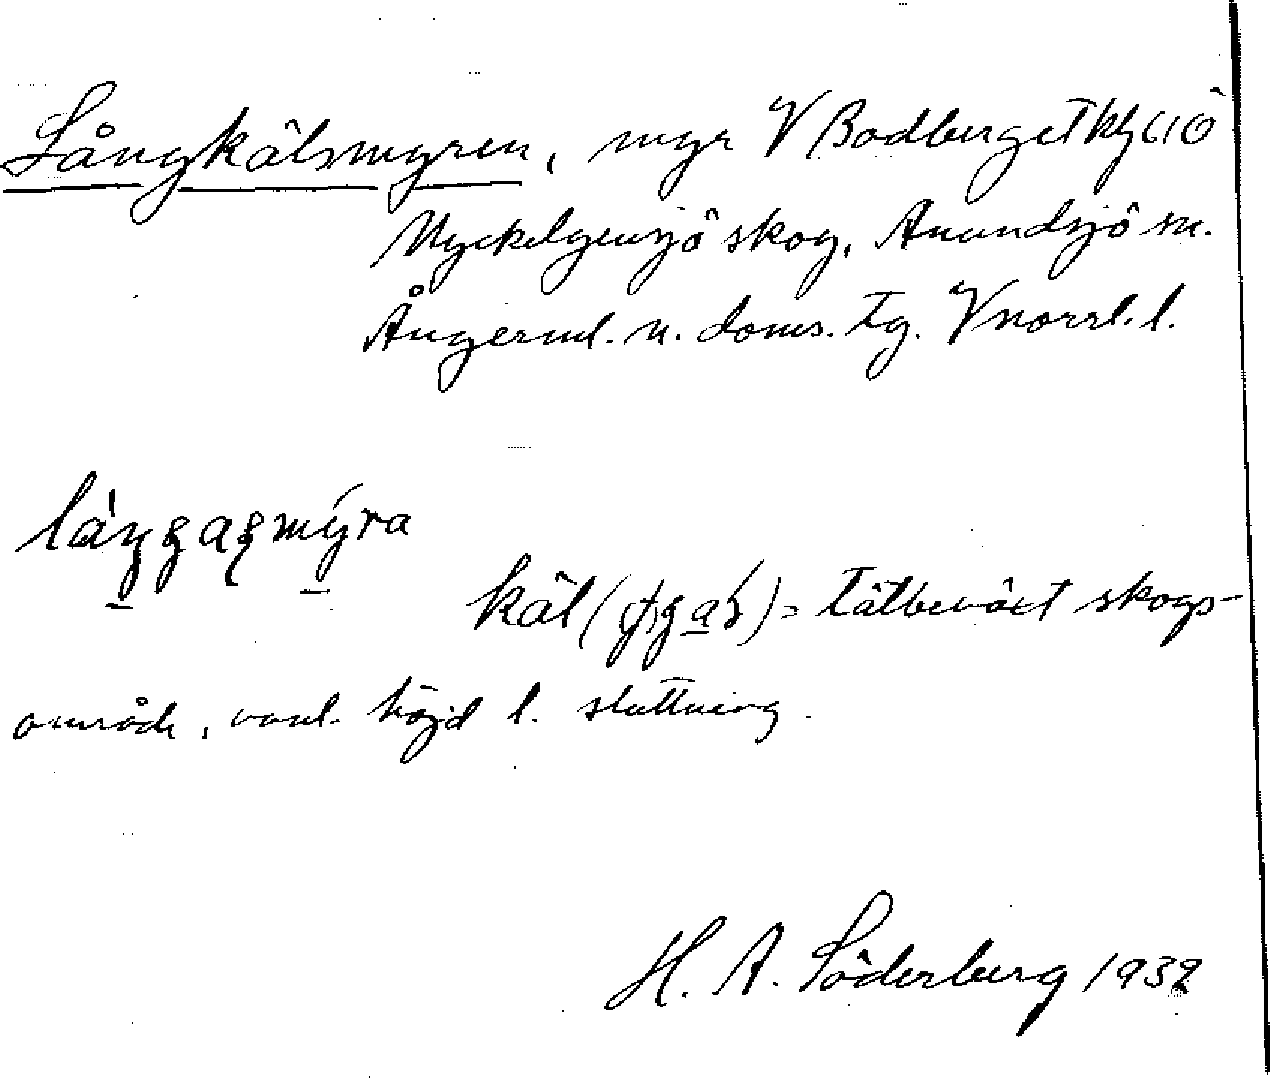 Långkälsmyren, myr V Bodberget
Myckelgensjö skog, Anundsjö sn.
Ångerml. n. doms. tg. Vnorrl. l.
käl = tätbeväxt skogs-
område, vanl. höjd l. sluttning.
H. A. Söderberg 1939